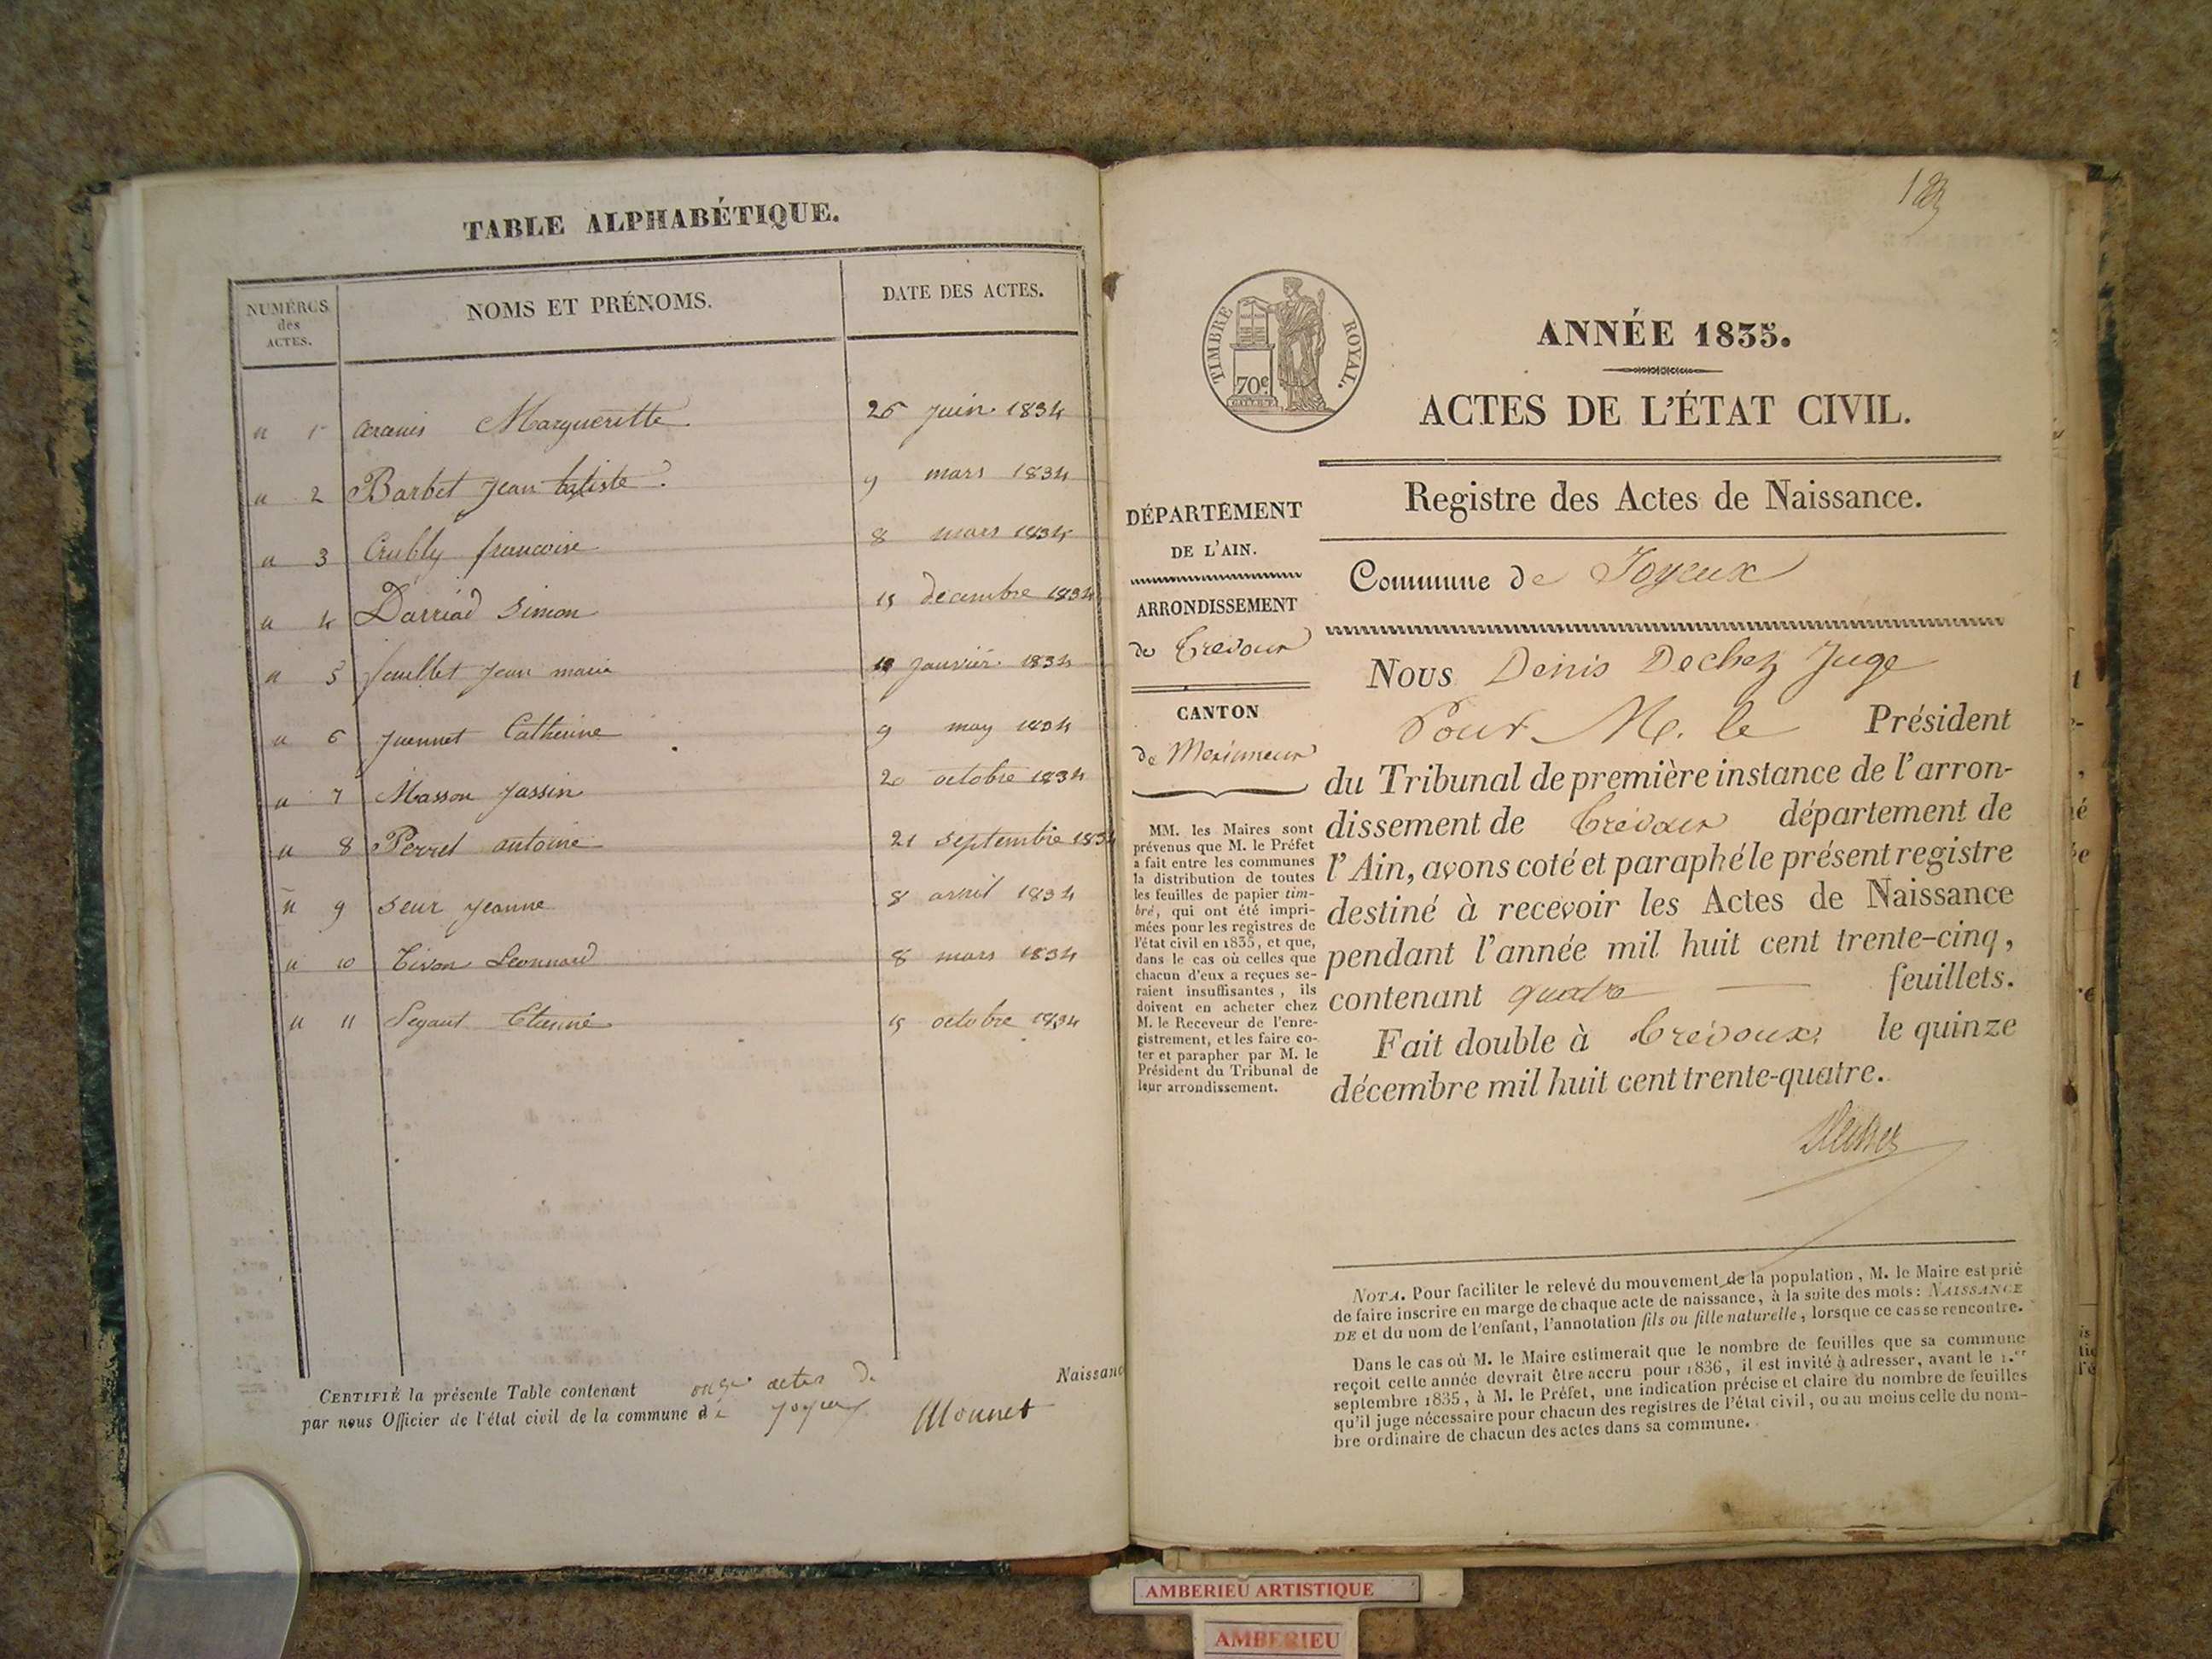 TABLE ALPHABÉTIQUE.
NUMÉROS des ACTES.
NOMS ET PRÉNOMS.
DATE DES ACTES.
n 1 Margueritte 26 juin 1834
n 2 Barbet jean batiste 9 mars 1834
n 3 Crubly francoise 8 mars 1834
n 4 Darriad Simon 15 decembre 1834
n 5 feuillet jean marie janvier 1834
n 6 juennet Catherine 9 may 1834
n 7 Masson jassin 20 octobre 1834
n 8 Perret antoine 21 septembre 1834
n 9 Seur jeanne 8 avril 1834
n 10 Tivan Leonnard 8 mars 1834
n 11 Etienne 15 octobre 1834
CERTIFIÉ la présente Table contenant onze actes de Naissanc
par nous Officier de l'état civil de la commune de joyeux Monnet
TIMBRE ROYAL.
70c
ANNÉE 1835.
ACTES DE L'ÉTAT CIVIL.
Registre des Actes de Naissance.
DÉPARTEMENT
DE L'AIN.
ARRONDISSEMENT
de Trevoux
CANTON
de Meximieux
MM. les Maires sont
prévenus que M. le Préfet
a fait entre les communes
la distribution de toutes
les feuilles de papier tim-
bré, qui ont été impri-
mées pour les registres de
l'état civil en 1835, et que,
dans le cas où celles que
chacun d'eux a reçues se-
raient insuffisantes, ils
doivent en acheter chez
M. le Receveur de l'enre-
gistrement, et les faire co-
ter et parapher par M. le
Président du Tribunal de
leur arrondissement.
Commune de Joyeux
Nous Denis Dechez Juge
Pour M. le Président
du Tribunal de première instance de l'arron-
dissement de Trévoux département de
l'Ain, avons coté et paraphé le présent registre
destiné à recevoir les Actes de Naissance
pendant l'année mil huit cent trente-cinq,
contenant quatre feuillets.
Fait double à Trévoux, le quinze
décembre mil huit cent trente-quatre.
NOTA. Pour faciliter le relevé du mouvement de la population, M. le Maire est prié
de faire inscrire en marge de chaque acte de naissance, à la suite des mots: NAISSANCE
DE et du nom de l'enfant, l'annotation fils ou fille naturelle, lorsque ce cas se rencontre.
Dans le cas où M. le Maire estimerait que le nombre de feuilles que sa commune
reçoit cette année devrait être accru pour 1836, il est invité à adresser, avant le 1.er
septembre 1835, à M. le Préfet, une indication précise et claire du nombre de feuilles
qu'il juge nécessaire pour chacun des registres de l'état civil, ou au moins celle du nom-
bre ordinaire de chacun des actes dans sa commune.
AMBERIEU ARTISTIQUE
AMBERIEU